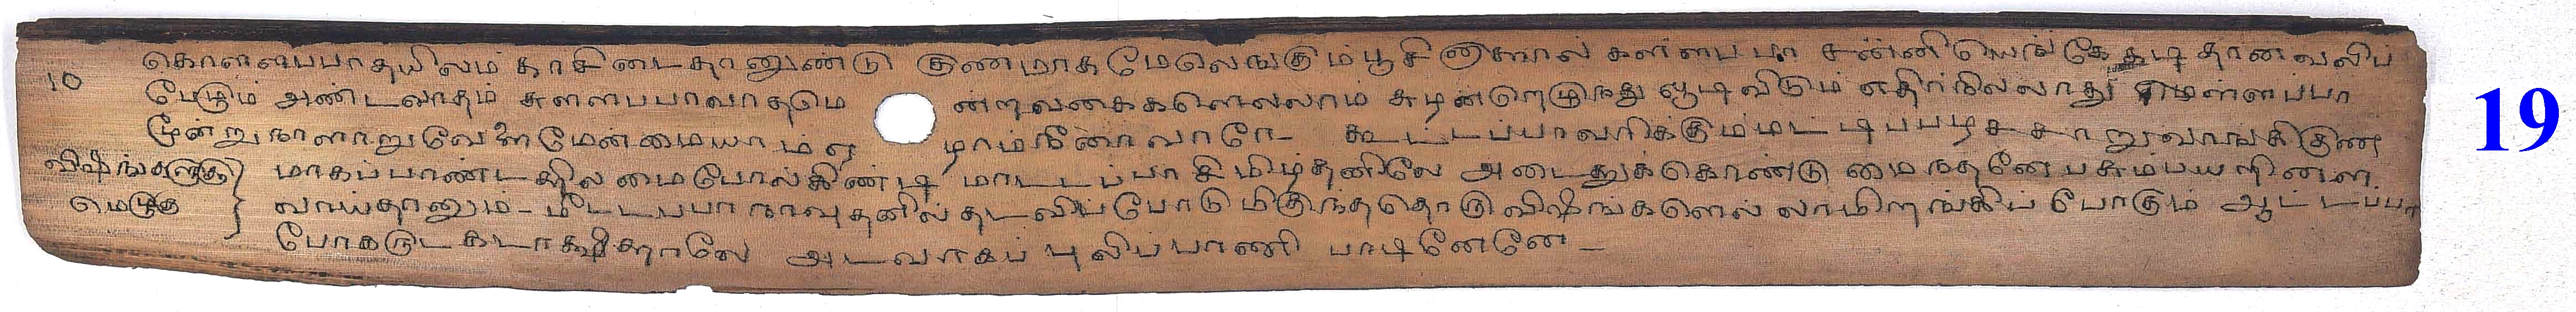 கொளளபபாதயிலம காசிடைதானுண்டு குணமாக மேலெஙகும்பூசினால் கள்ளபபா சன்னியெங்கே தானவலிப்
10 பேடும் அண்டவாதம் சுளளபபாவாதமெ ன்றவகைகளெலலாம சுழன்றெழுநது ஒடிவிடும் எதிர்நில்லாது மெள்ளப்பா
மூன்றுநாளாறுவேளை மேன்மையாம் ஏ ழாம்நீனாவாரே - கூட்டப்பாவரிக்கும்மட்டிபபழசசாறுவாங்கி குண
விஷங்களுக்கு மாகப்பாண்ட மைபோல்கிண்டி மாட்டப்பா சிமிழ்தனிலே அடைத்துக்கொண்டு மைநதனே பசும்பயறினள
மெழுகு வாய்தானும் - மீட்டபபா நாவுதனில் தடவிப்போடு மிகுந்ததொரு விஷங்களெல் லாமிறங்கிப் போகும் ஆட்டப்பா
போகருட கடாக்ஷத்தாலே அடவாகப் புலிப்பாணி பாடினேனே -
19